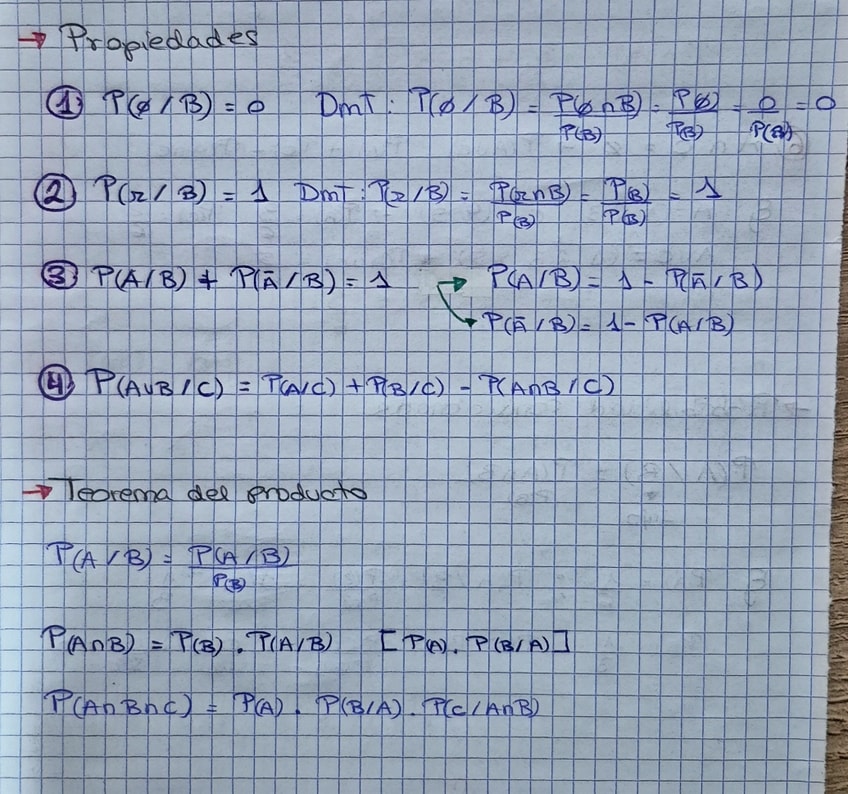 → Propiedades
① P(ø/B) = 0 DmT: P(ø/B) = P(ø∩B)/P(B) = P(ø)/P(B) = 0/P(B) = 0
② P(Ω/B) = 1 DmT: P(Ω/B) = P(Ω∩B)/P(B) = P(B)/P(B) = 1
③ P(A/B) + P(Ā/B) = 1 → P(A/B) = 1 - P(Ā/B)
→ P(Ā/B) = 1 - P(A/B)
④ P(A∪B/C) = P(A/C) + P(B/C) - P(A∩B/C)
→ Teorema del producto
P(A/B) = P(A/B)/P(B)
P(A∩B) = P(B) . P(A/B) [P(A) . P(B/A)]
P(A∩B∩C) = P(A) . P(B/A) . P(C/A∩B)